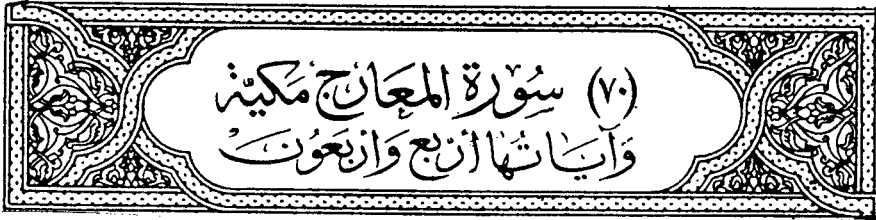 (٧٠) سُورَةِ المَعَارِجِ مَكيّة
وَآيَاتُهَا أَرْبَع وَأَرْبَعُونَ